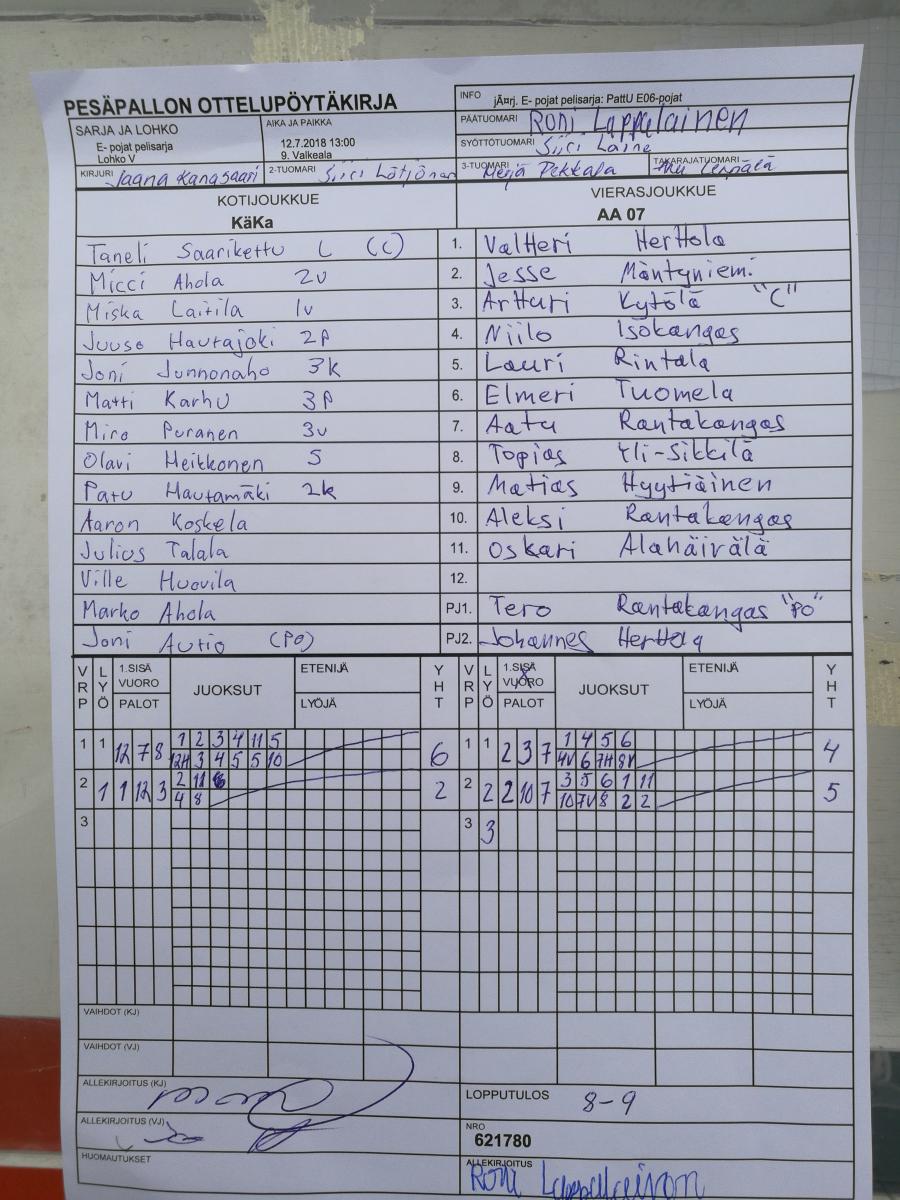 PESÄPALLON OTTELUPÖYTÄKIRJA
INFO jÃ¤rj. E- pojat pelisarja: PattU E06-pojat
PÄÄTUOMARI Roni Lappalainen
SARJA JA LOHKO
E- pojat pelisarja
Lohko V
AIKA JA PAIKKA
12.7.2018 13:00
9. Valkeala
SYÖTTÖTUOMARI Siiri Laine
KIRJURI Jaana Kangasaari 2-TUOMARI Siiri Lötjönen 3-TUOMARI Merja Pekkala TAKARAJATUOMARI
KOTIJOUKKUE VIERASJOUKKUE
KäKa AA 07
Taneli Saarikettu L (C) 1. Valtteri Herttola
Micci Ahola 2v 2. Jesse Mäntyniemi
Miska Laitila 1v 3. Artturi Kytölä "C"
Juuso Hautajoki 2P 4. Niilo Isokangas
Joni Junnonaho 3k 5. Lauri Rintala
Matti Karhu 3P 6. Elmeri Tuomela
Miro Puranen 3v 7. Aatu Rantakangas
Olavi Heikkonen S 8. Topias Yli-Sikkilä
Patu Hautamäki 2k 9. Matias Hyytiäinen
Aaron Koskela 10. Aleksi Rantakangas
Julius Talala 11. Oskari Alahäivälä
Ville Huovila 12.
Marko Ahola PJ1. Tero Rantakangas "PO"
Joni Autio (PO) PJ2. Johannes Herttola
VRP LYÖ 1.SISÄ VUORO PALOT JUOKSUT ETENIJÄ LYÖJÄ YHT VRP LYÖ 1.SISÄ VUORO PALOT JUOKSUT ETENIJÄ LYÖJÄ YHT
1 1 12 7 8 1 2 3 4 11 5 6 1 1 2 3 7 1 4 5 6 4
12H 3 4 5 5 10 4V 6 7H 8V
2 1 1 12 3 2 11 6 2 2 2 2 10 7 3 5 6 1 11 5
4 8 10 7V 8 2 2
3 3 3
VAIHDOT (KJ)
VAIHDOT (VJ)
ALLEKIRJOITUS (KJ) LOPPUTULOS 8-9
ALLEKIRJOITUS (VJ) NRO
621780
HUOMAUTUKSET ALLEKIRJOITUS
Roni Lappalainen